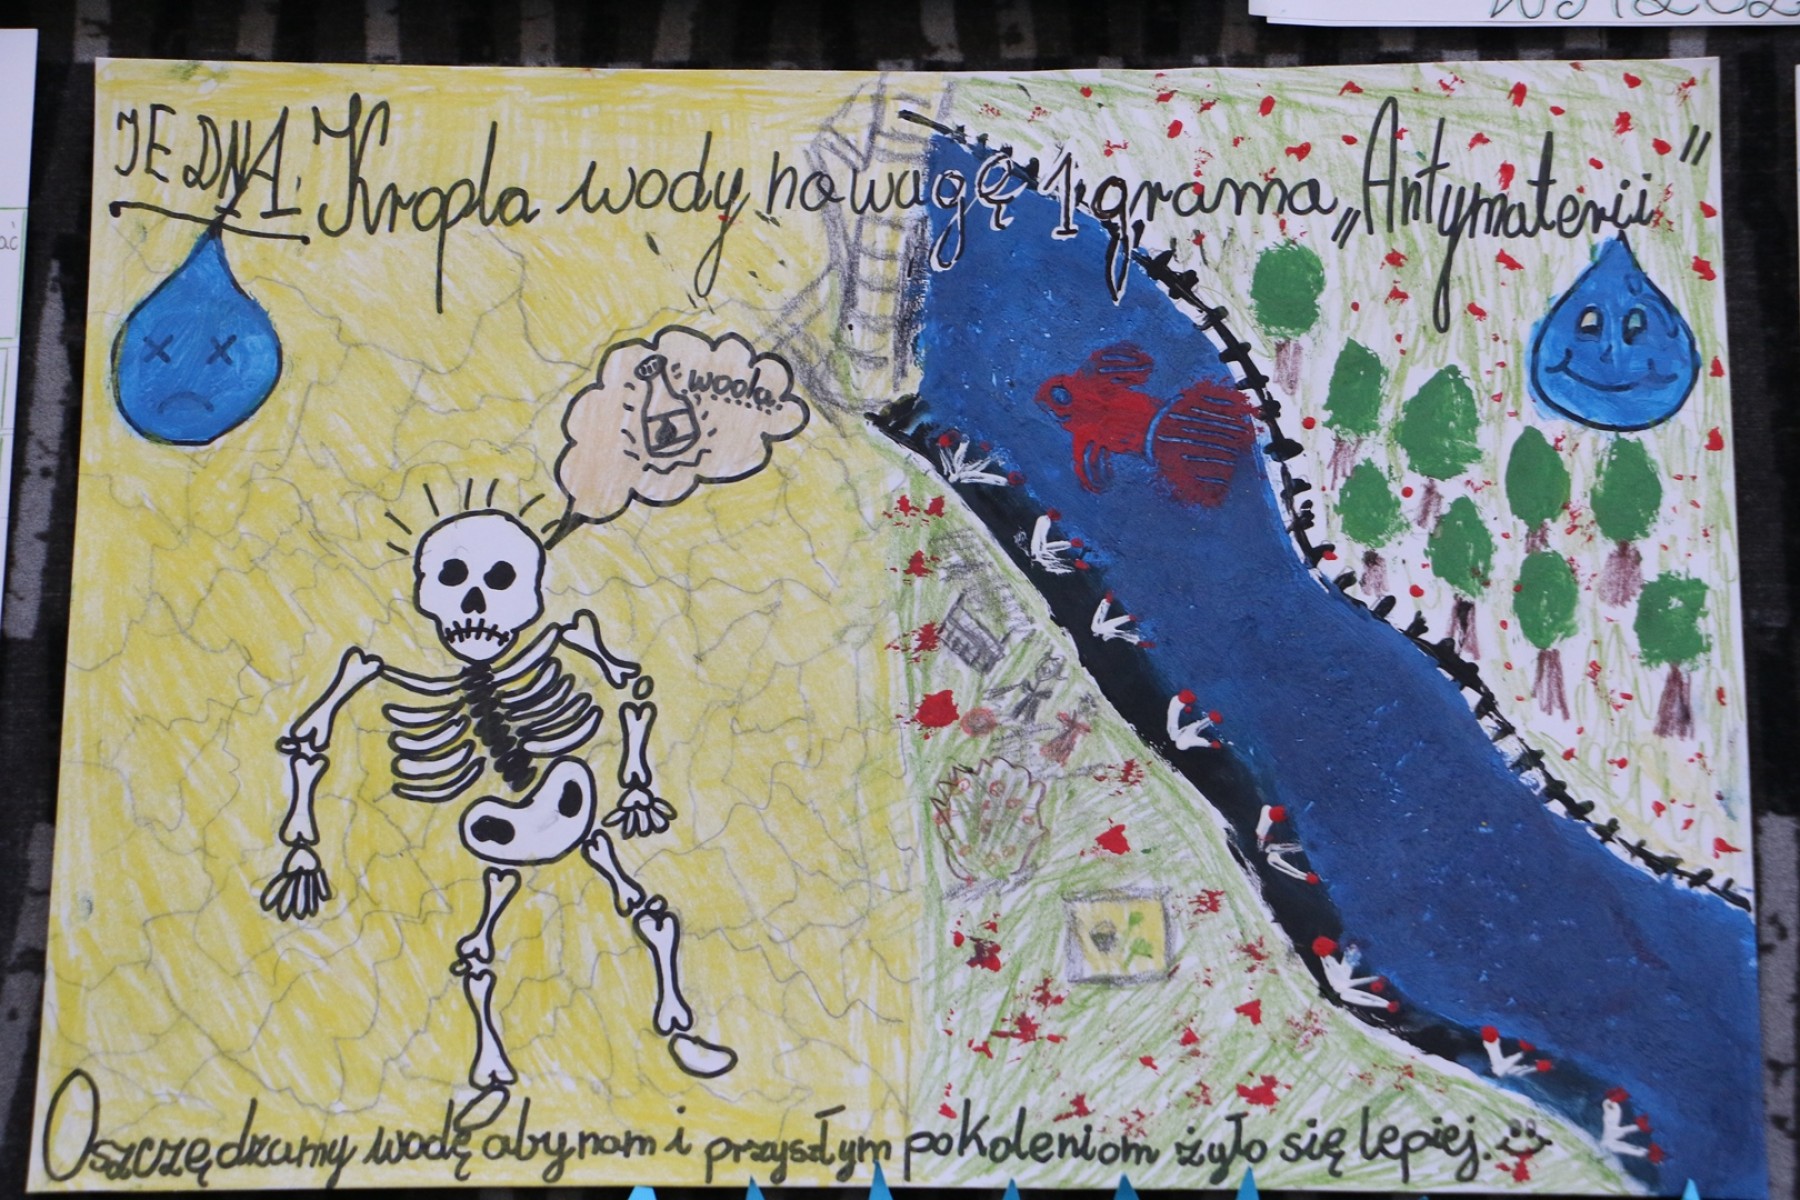 JEDNA Kropla wody „na wagę 1 grama „Antymaterii"
woda...
Oszczędzamy wodę aby nam i przyszłym pokoleniom żyło się lepiej.